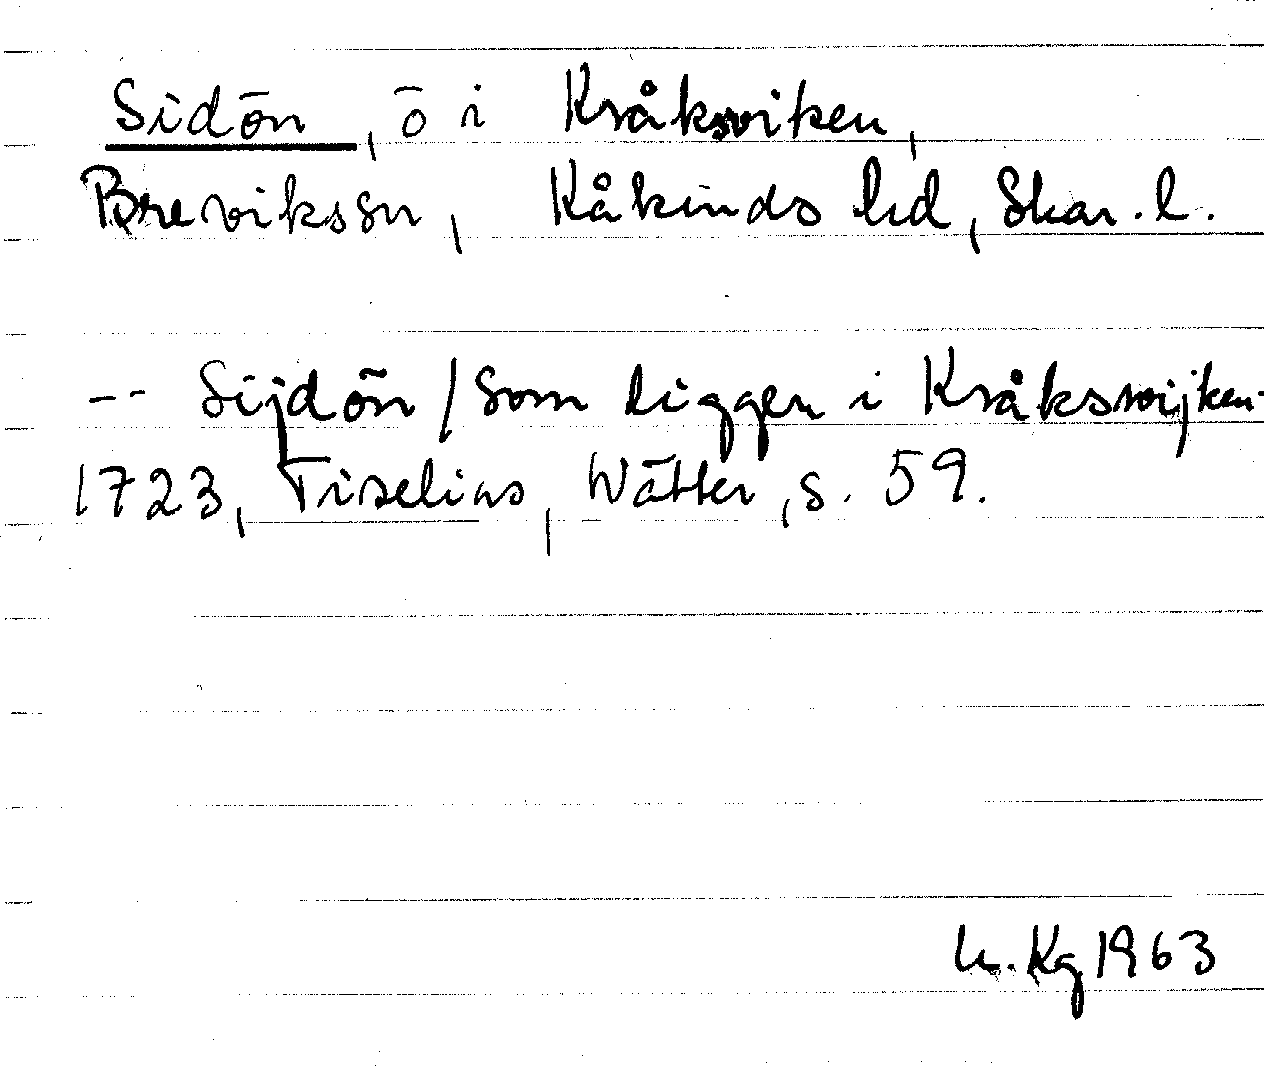 Sidön, ö i Kråksviken,
Brevikssn, Kåkinds hd, Skar. l.
-- Sijdön / som ligger i Kråkswijken.
1723, Tiselius, Wätter, s. 59.
Kg 1963